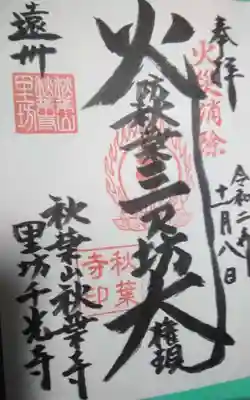 奉拝
火災消除
令和
年
十一月八日
火防秋葉三尺坊大権現
秋葉寺印
遠州
秋葉山秋葉寺
里坊千光寺